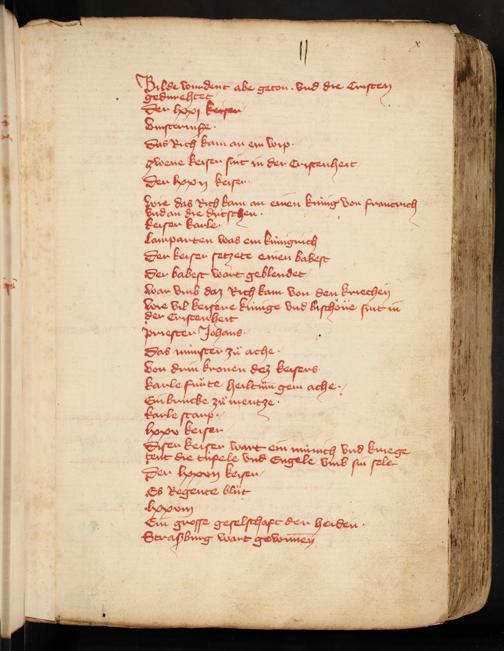 x
Bilde wurdent abe geton. vnd die Cristen
gedurehtet
Der lxxj keiser
Vinsternise.
Das Rich kam an ein wip.
zwene keiser sint in der Cristenheit
Der lxxij keiser
wie das Rich kam an einen kúnig von franckrich
vnd an die dutschen.
keiser karle.
Lamparten was ein kúnigrich
Der keiser setzete einen babest
Der babest wart geblendet
war vmb daz Rich kam von den kriechen
wie vil keisere kúnige vnd bischöue sint in
der Cristenheit
priester Johans.
Das múnster zů ache.
Von drin kronen dez keisers
karle fůrte heiltům gein ache.
Ein brucke zů mentze.
karle starp.
lxxv keiser
Diser keiser wart ein múnich vnd kriege
tent die túfele vnd Engele vmb sin sele
Der lxxvij keiser
Es Regente blůt
lxxviij
Ein grosse geselschaft der heiden.
Straßburg wart gewonnen